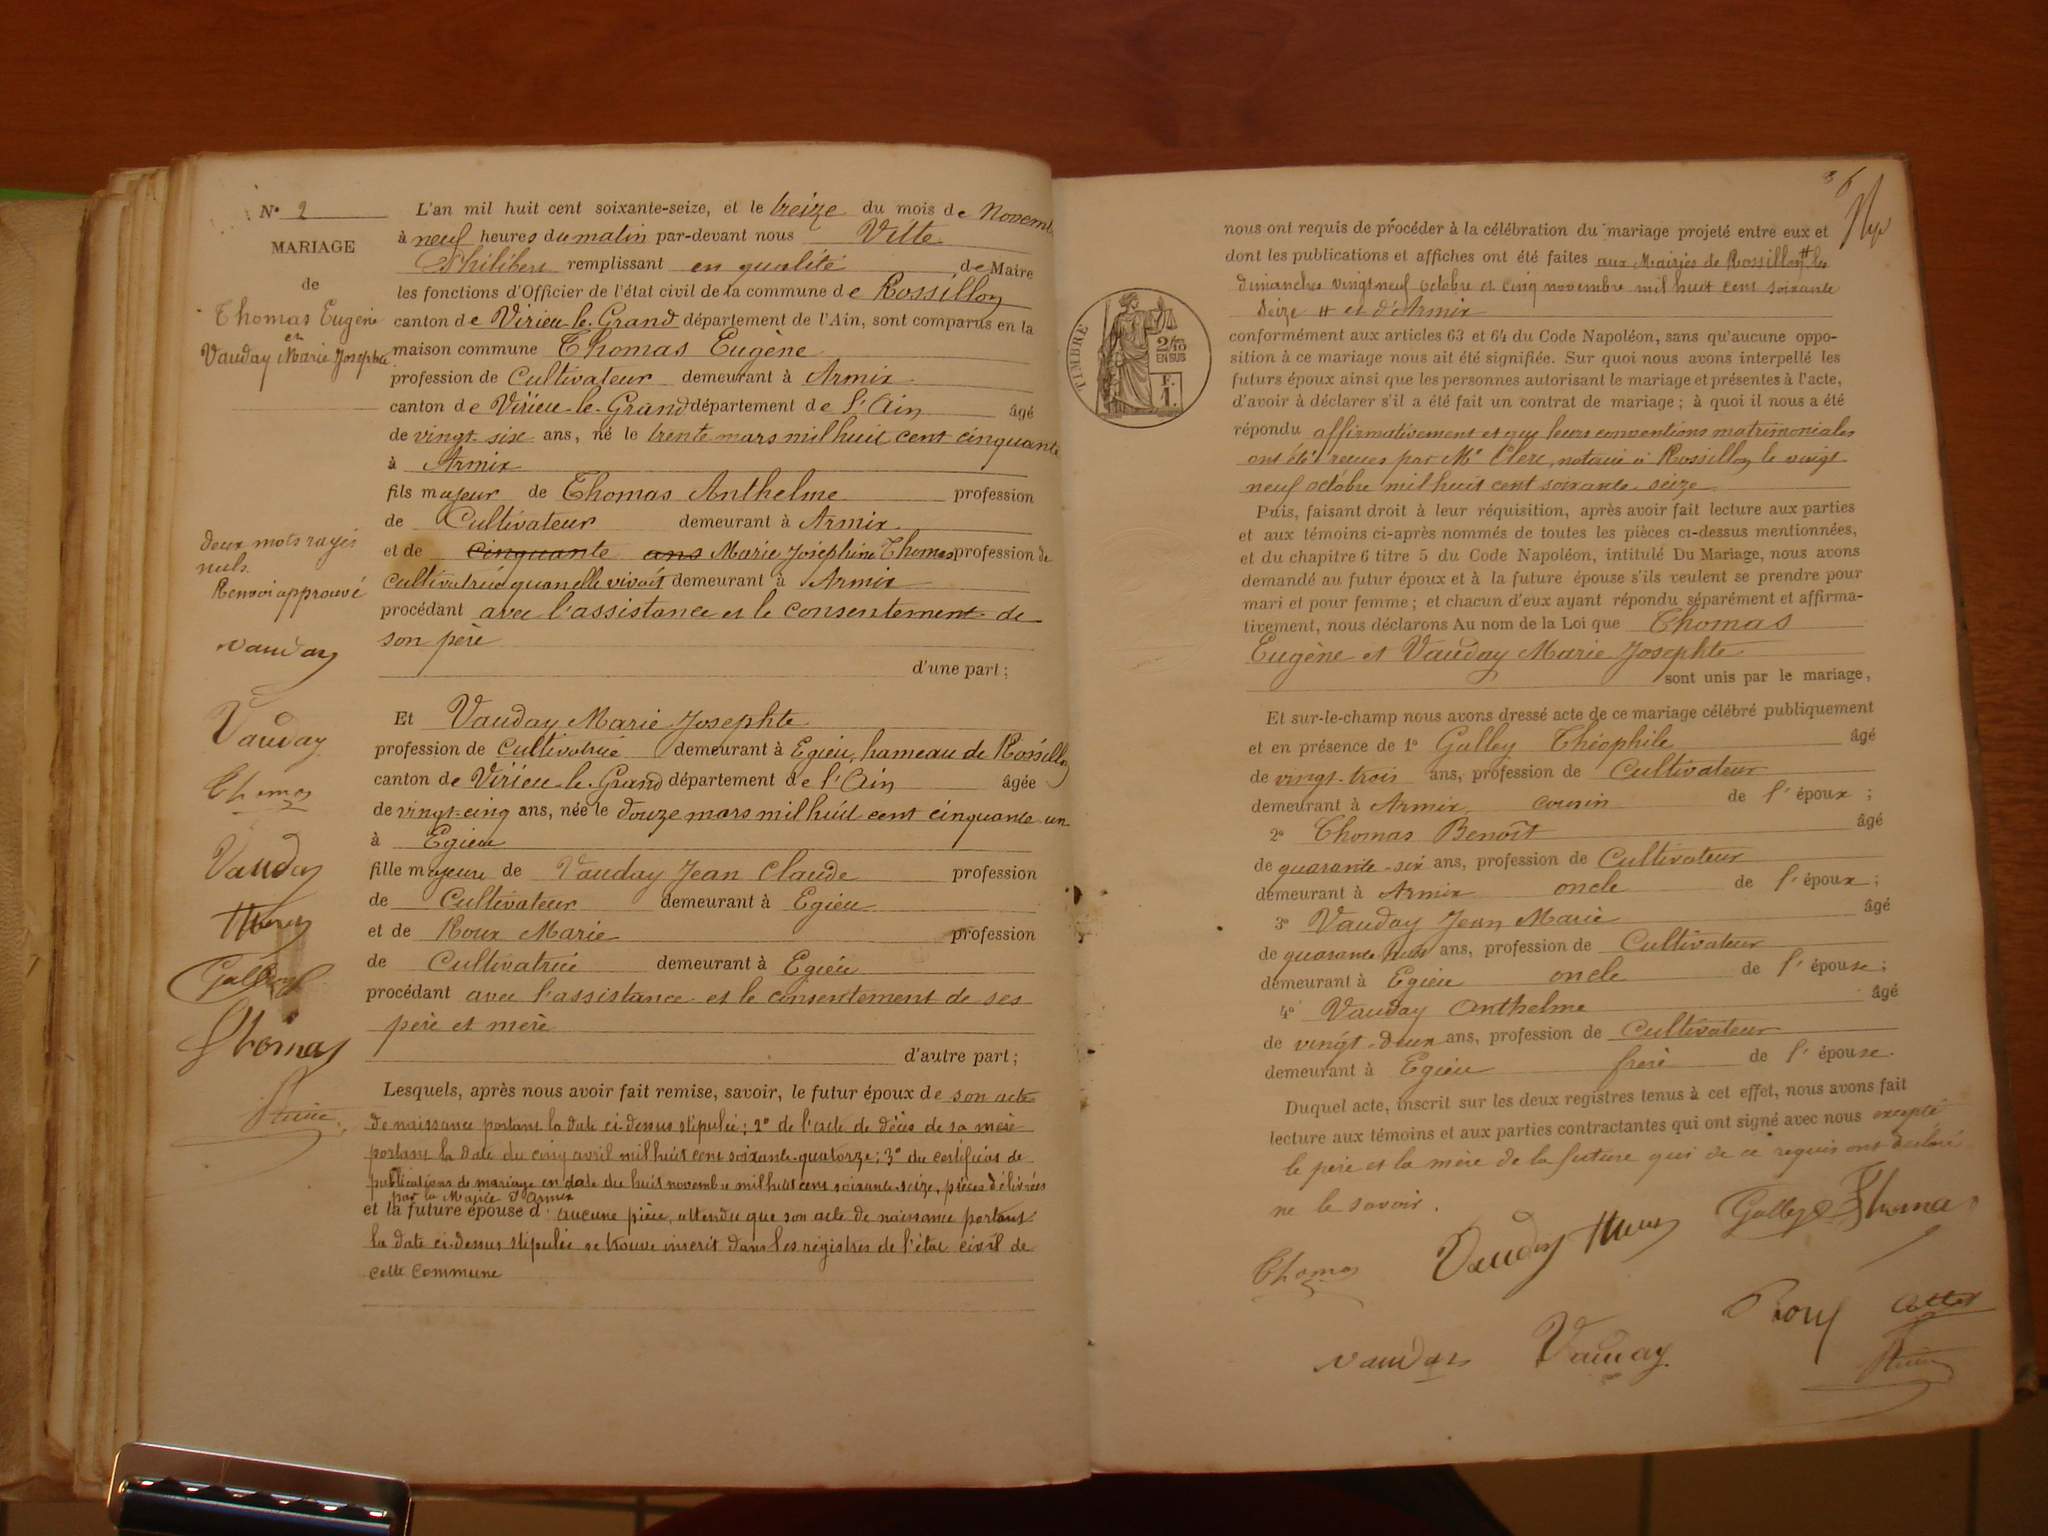 N° 2
MARIAGE
de
Thomas Eugène
et
Vauday Marie Josephte
deux mots rayés
nuls.
Renvoi approuvé
Vauday
Vauday
Thomas
Vauday
Galley
Thomas
L'an mil huit cent soixante-seize, et le treize du mois de Novemb
à neuf heures du matin par-devant nous
Philibert remplissant en qualité de Maire
les fonctions d'Officier de l'état civil de la commune de Rossillon
canton de Virieu-le-Grand département de l'Ain, sont comparus en la
maison commune Thomas Eugène
profession de Cultivateur demeurant à Armix
canton de Virieu-le-Grand département de l'Ain âgé
de vingt-six ans, né le trente mars mil huit cent cinquante
à Armix
fils majeur de Thomas Anthelme profession
de Cultivateur demeurant à Armix
et de cinquante ans Marie Joséphine Thomas profession de
cultivatrice quand elle vivait demeurant à Armix
procédant avec l'assistance et le consentement de
son père
d'une part;
Et Vauday Marie Josephte
profession de Cultivatrice demeurant à Egieu, hameau de Rossillon
canton de Virieu-le-Grand département de l'Ain âgée
de vingt-cinq ans, née le douze mars mil huit cent cinquante-un
à Egieu
fille majeure de Vauday Jean Claude profession
de Cultivateur demeurant à Egieu
et de Roux Marie profession
de Cultivatrice demeurant à Egieu
procédant avec l'assistance et le consentement de ses
père et mère
d'autre part;
Lesquels, après nous avoir fait remise, savoir, le futur époux de son acte
de naissance portant la date ci-dessus stipulée; 2° de l'acte de décès de sa mère
portant la date du cinq avril mil huit cent soixante-quatorze; 3° du certificat de
publications de mariage en date du huit novembre mil huit cent soixante-seize, pièces délivrées
par la Mairie d'Armix
et la future épouse d'aucune pièce, attendu que son acte de naissance portant
la date ci-dessus stipulée se trouve inscrit dans les régistres de l'état civil de
cette commune
TIMBRE
2/10
EN SUS
F.
1.
nous ont requis de procéder à la célébration du mariage projeté entre eux et
dont les publications et affiches ont été faites aux Mairies de Rossillon # les
dimanches vingt neuf octobre et cinq novembre mil huit cent soixante
seize # et d'Armix
conformément aux articles 63 et 64 du Code Napoléon, sans qu'aucune oppo-
sition à ce mariage nous ait été signifiée. Sur quoi nous avons interpellé les
futurs époux ainsi que les personnes autorisant le mariage et présentes à l'acte,
d'avoir à déclarer s'il a été fait un contrat de mariage; à quoi il nous a été
répondu affirmativement et que leurs conventions matrimoniales
ont été reçues par Me Clerc, notaire à Rossillon le vingt
neuf octobre mil huit cent soixante-seize
Puis, faisant droit à leur réquisition, après avoir fait lecture aux parties
et aux témoins ci-après nommés de toutes les pièces ci-dessus mentionnées,
et du chapitre 6 titre 5 du Code Napoléon, intitulé Du Mariage, nous avons
demandé au futur époux et à la future épouse s'ils veulent se prendre pour
mari et pour femme; et chacun d'eux ayant répondu séparément et affirma-
tivement, nous déclarons Au nom de la Loi que Thomas
Eugène et Vauday Marie Josephte
sont unis par le mariage,
Et sur-le-champ nous avons dressé acte de ce mariage célébré publiquement
et en présence de 1° Galley Théophile âgé
de vingt-trois ans, profession de Cultivateur
demeurant à Armix cousin de l'époux;
2° Thomas Benoît âgé
de quarante-six ans, profession de Cultivateur
demeurant à Armix oncle de l'époux;
3° Vauday Jean Marie âgé
de quarante huit ans, profession de Cultivateur
demeurant à Egieu oncle de l'épouse;
4° Vauday Anthelme âgé
de vingt-deux ans, profession de Cultivateur
demeurant à Egieu frère de l'épouse.
Duquel acte, inscrit sur les deux registres tenus à cet effet, nous avons fait
lecture aux témoins et aux parties contractantes qui ont signé avec nous excepté
le père et la mère de la future qui de ce requis ont déclaré
ne le savoir.
Thomas Vauday Galley Thomas
Vauday Vauday Roux